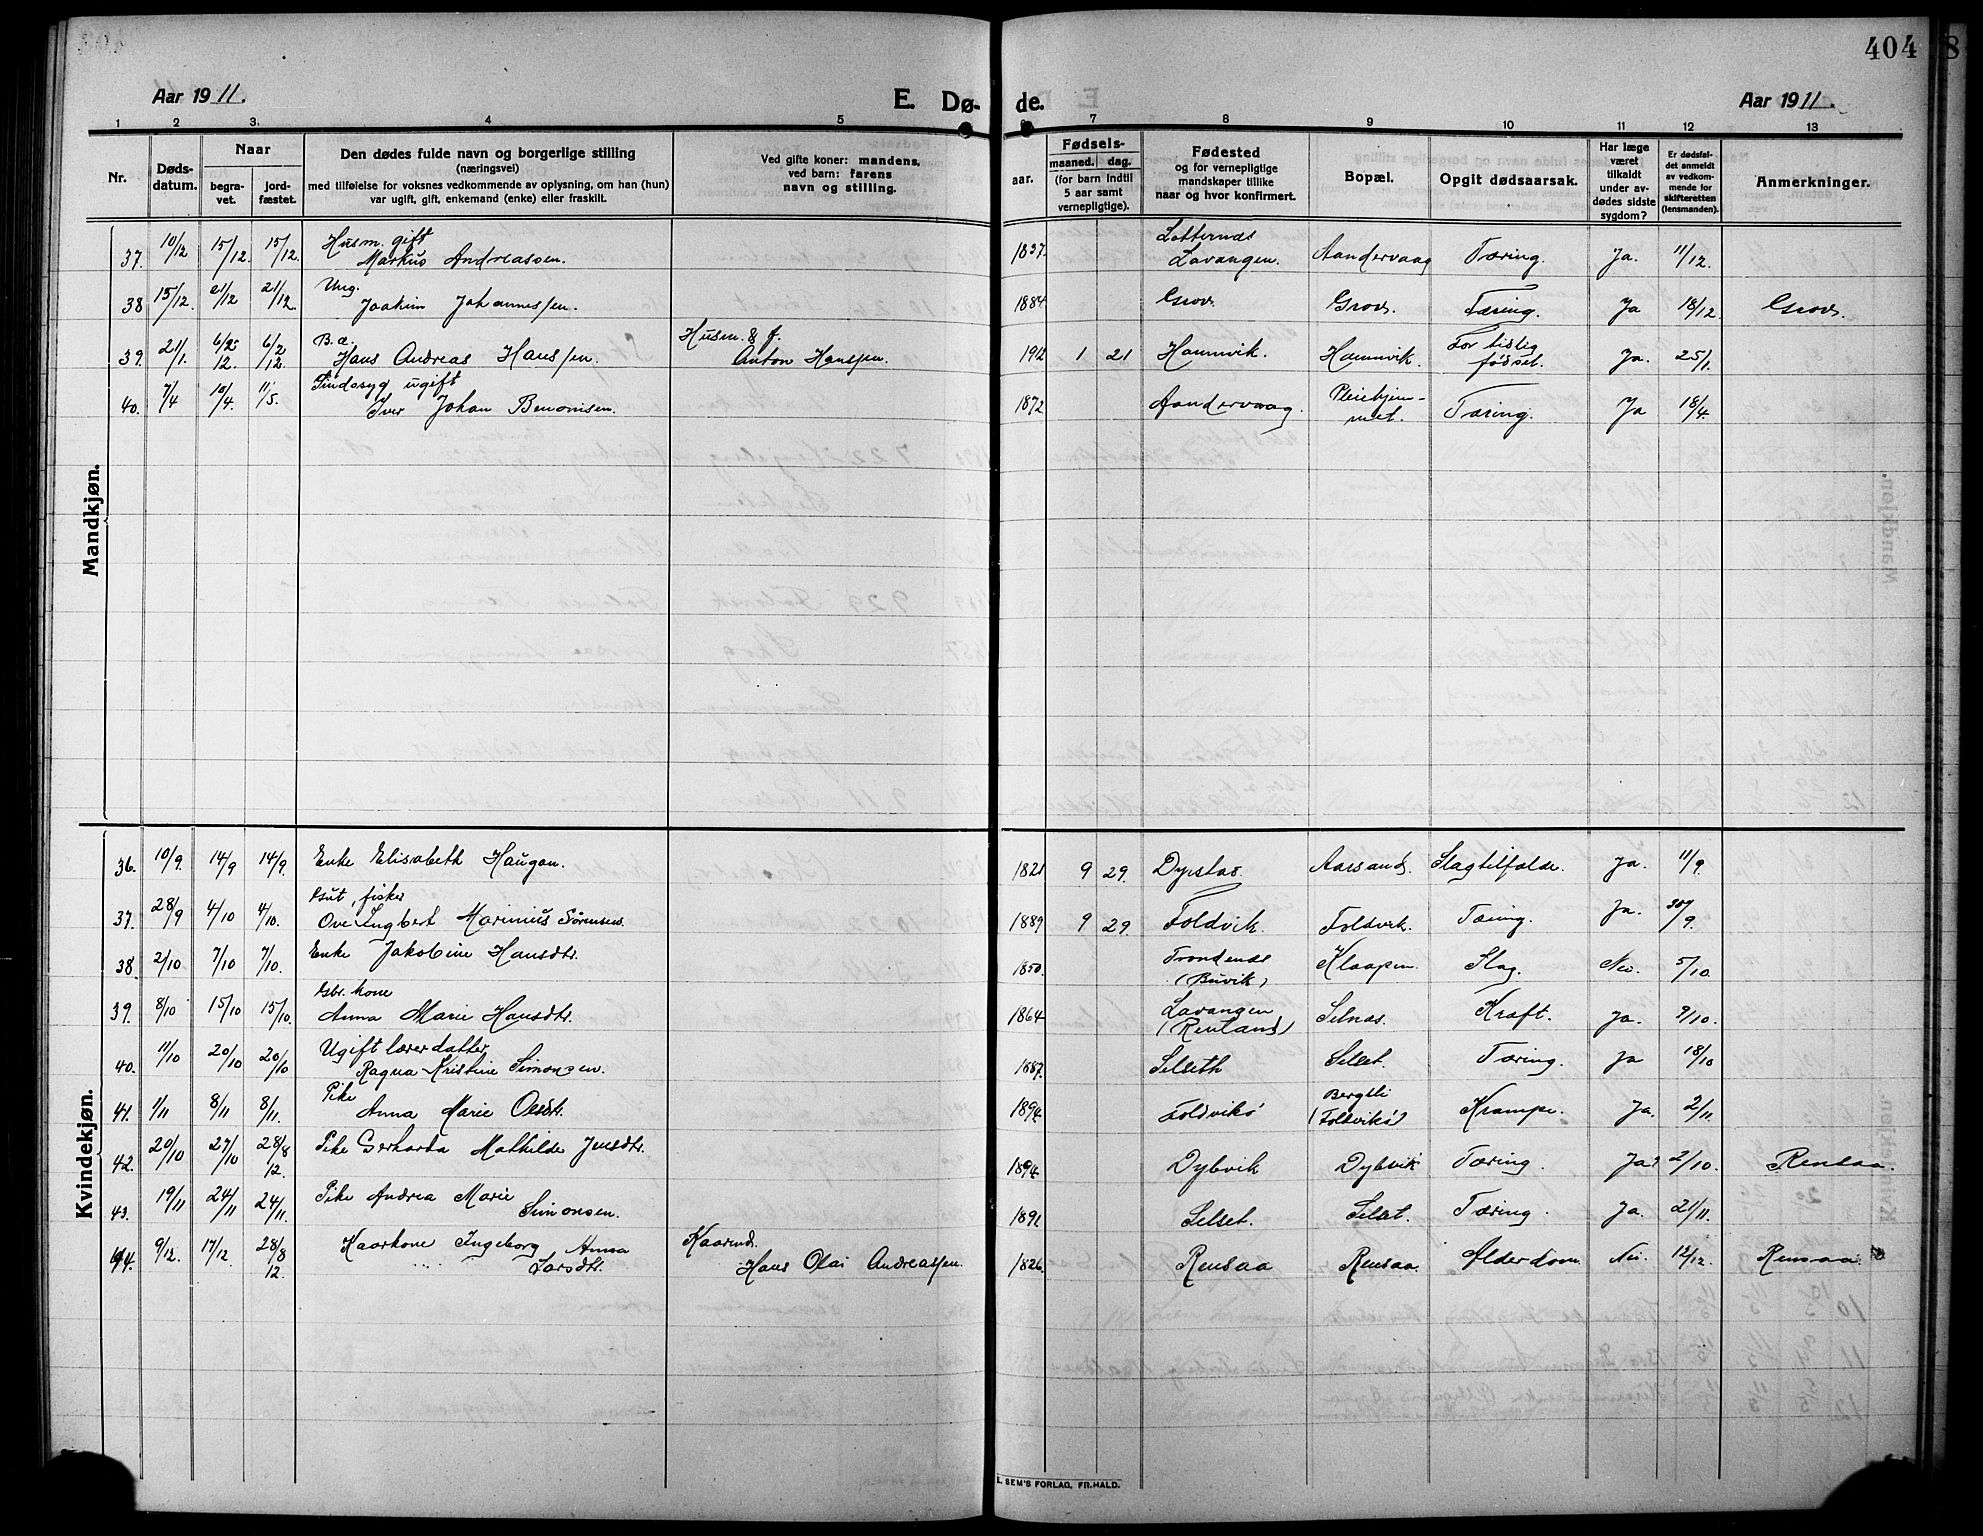 404
8
Aar 1911.
E. Dø-
de.
Aar 1911.
1 2 3. 4 5
7 8 9 10 11 12 13
Nr.
Døds-
datum.
Naar
begra-
vet.
jord-
fæstet.
Den dødes fulde navn og borgerlige stilling
(næringsvei)
med tilføielse for voksnes vedkommende av oplysning, om han (hun)
var ugift, gift, enkemand (enke) eller fraskilt.
Ved gifte koner: mandens,
ved barn: farens
navn og stilling.
aar.
Fødsels-
maaned. dag.
(for barn indtil
5 aar samt
vernepligtige).
Fødested
og for vernepligtige
mandskaper tillike
naar og hvor konfirmert.
Bopæl.
Opgit dødsaarsak.
Har læge
været
tilkaldt
under av-
dødes sidste
sygdom?
Er dødsfal-
det anmeldt
av vedkom-
mende for
skifteretten
(lensmanden).
Anmerkninger.
Mandkjøn.
Husm. gift
37. 10/12 15/12. 15/12. Markus Andreassen. 1837. Lavangen. Aandervaag Tæring. Ja. 11/12.
Ung.
38 15/12. 21/12 21/12. Joakim Johannessen. 1884 Grov. Grov. Tæring. Ja 18/12. Grov.
B. a. Husm. & f.
39. 21/1. 6/2 12. 6/2 12. Hans Andreas Hanssen. Anton Hanssen. 1912 1 21 Hamnvik. Hamnvik. For tidlig fødsel. Ja. 25/1.
Sindssyg ugift
40. 7/4 10/4. 11/5. Iver Johan Benonisen. 1872 Aandervaag. Pleiehjem-
met. Tæring. Ja 18/4.
Kvindekjøn.
36. 10/9. 14/9 14/9. Enke Elisabeth Haugan. 1821 9 29. Dyrstad Aarsand. Slagtilfælde. Ja. 11/9.
Gut, fisker
37. 28/9 4/10 4/10. Ove Ingbert Marinius Sørensen. 1889 9 29. Foldvik. Foldvik. Tæring. Ja. 30/9.
38. 2/10 7/10 7/10. Enke Jakobine Hansdtr. 1850. Trondenes
(Buvik) Klaapen. Slag. Nei. 5/10.
Gbr. kone
39. 8/10 15/10 15/10. Anna Marie Hansdtr. 1864 Lavangen
(Renland) Selnas. Kræft. Ja. 9/10.
Ugift lærerdatter
40. 11/10 20/10 20/10 Ragna Kristine Simonsen. 1887. Selseth Selset. Tæring. Ja 18/10
Pike
41. 1/11 8/11 8/11. Anna Marie Olsdtr. 1894. Foldvikø Bergsli
(Foldvikø) Krampe. Ja. 2/11.
42. 20/10 27/10 28/8 12. Pike Gerharda Mathilde Jensdtr. 1894. Dybvik Dybvik Tæring. Ja? 2/10. Rensaa.
43. 19/11 24/11 24/11. Pike Andrea Marie
Simonsen. 1891. Selset. Selset. Tæring. Ja. 21/11.
44. 9/12. 17/12 28/8 12. Kaarkone Ingeborg Anna
Larsdtr. Kaarmd.
Hans Olai Andreassen. 1826. Rensaa Rensaa. Alderdom. Nei. 12/12. Rensaa.
E. SEM'S FORLAG, FR.HALD.